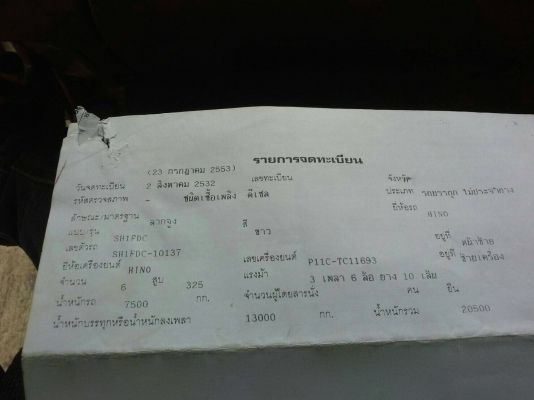 รายการจดทะเบียน
(23 กรกฎาคม 2553)
วันจดทะเบียน 2 สิงหาคม 2532 เลขทะเบียน จังหวัด
รหัสตรวจสภาพ - ชนิดเชื้อเพลิง ดีเซล ประเภท รถบรรทุก ไม่ประจำทาง
ลักษณะ/มาตรฐาน ลากจูง สี ขาว ยี่ห้อรถ HINO
แบบ/รุ่น SH1FDC
เลขตัวรถ SH1FDC-10137 อยู่ที่ หน้าซ้าย
ยี่ห้อเครื่องยนต์ HINO เลขเครื่องยนต์ P11C-TC11693 อยู่ที่ ซ้ายเครื่อง
จำนวน 6 สูบ 325 แรงม้า 3 เพลา 6 ล้อ ยาง 10 เส้น
น้ำหนักรถ 7500 กก. จำนวนผู้โดยสารนั่ง คน ยืน
น้ำหนักบรรทุกหรือน้ำหนักลงเพลา 13000 กก. น้ำหนักรวม 20500